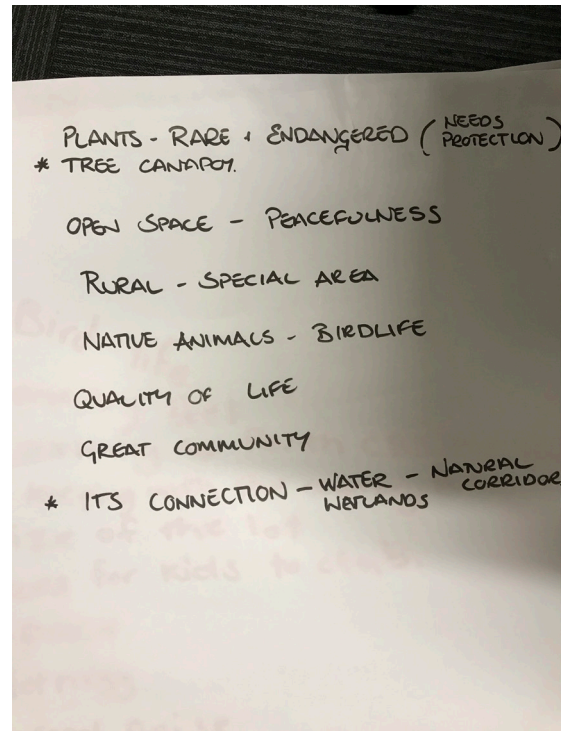 PLANTS - RARE + ENDANGERED (NEEDS PROTECTION)
* TREE CANAPOY.
OPEN SPACE - PEACEFULNESS
RURAL - SPECIAL AREA
NATIVE ANIMALS - BIRDLIFE
QUALITY OF LIFE
GREAT COMMUNITY
* ITS CONNECTION - WATER - NATURAL CORRIDOR
WETLANDS
Bird life
size of the lot
for kids to climb.